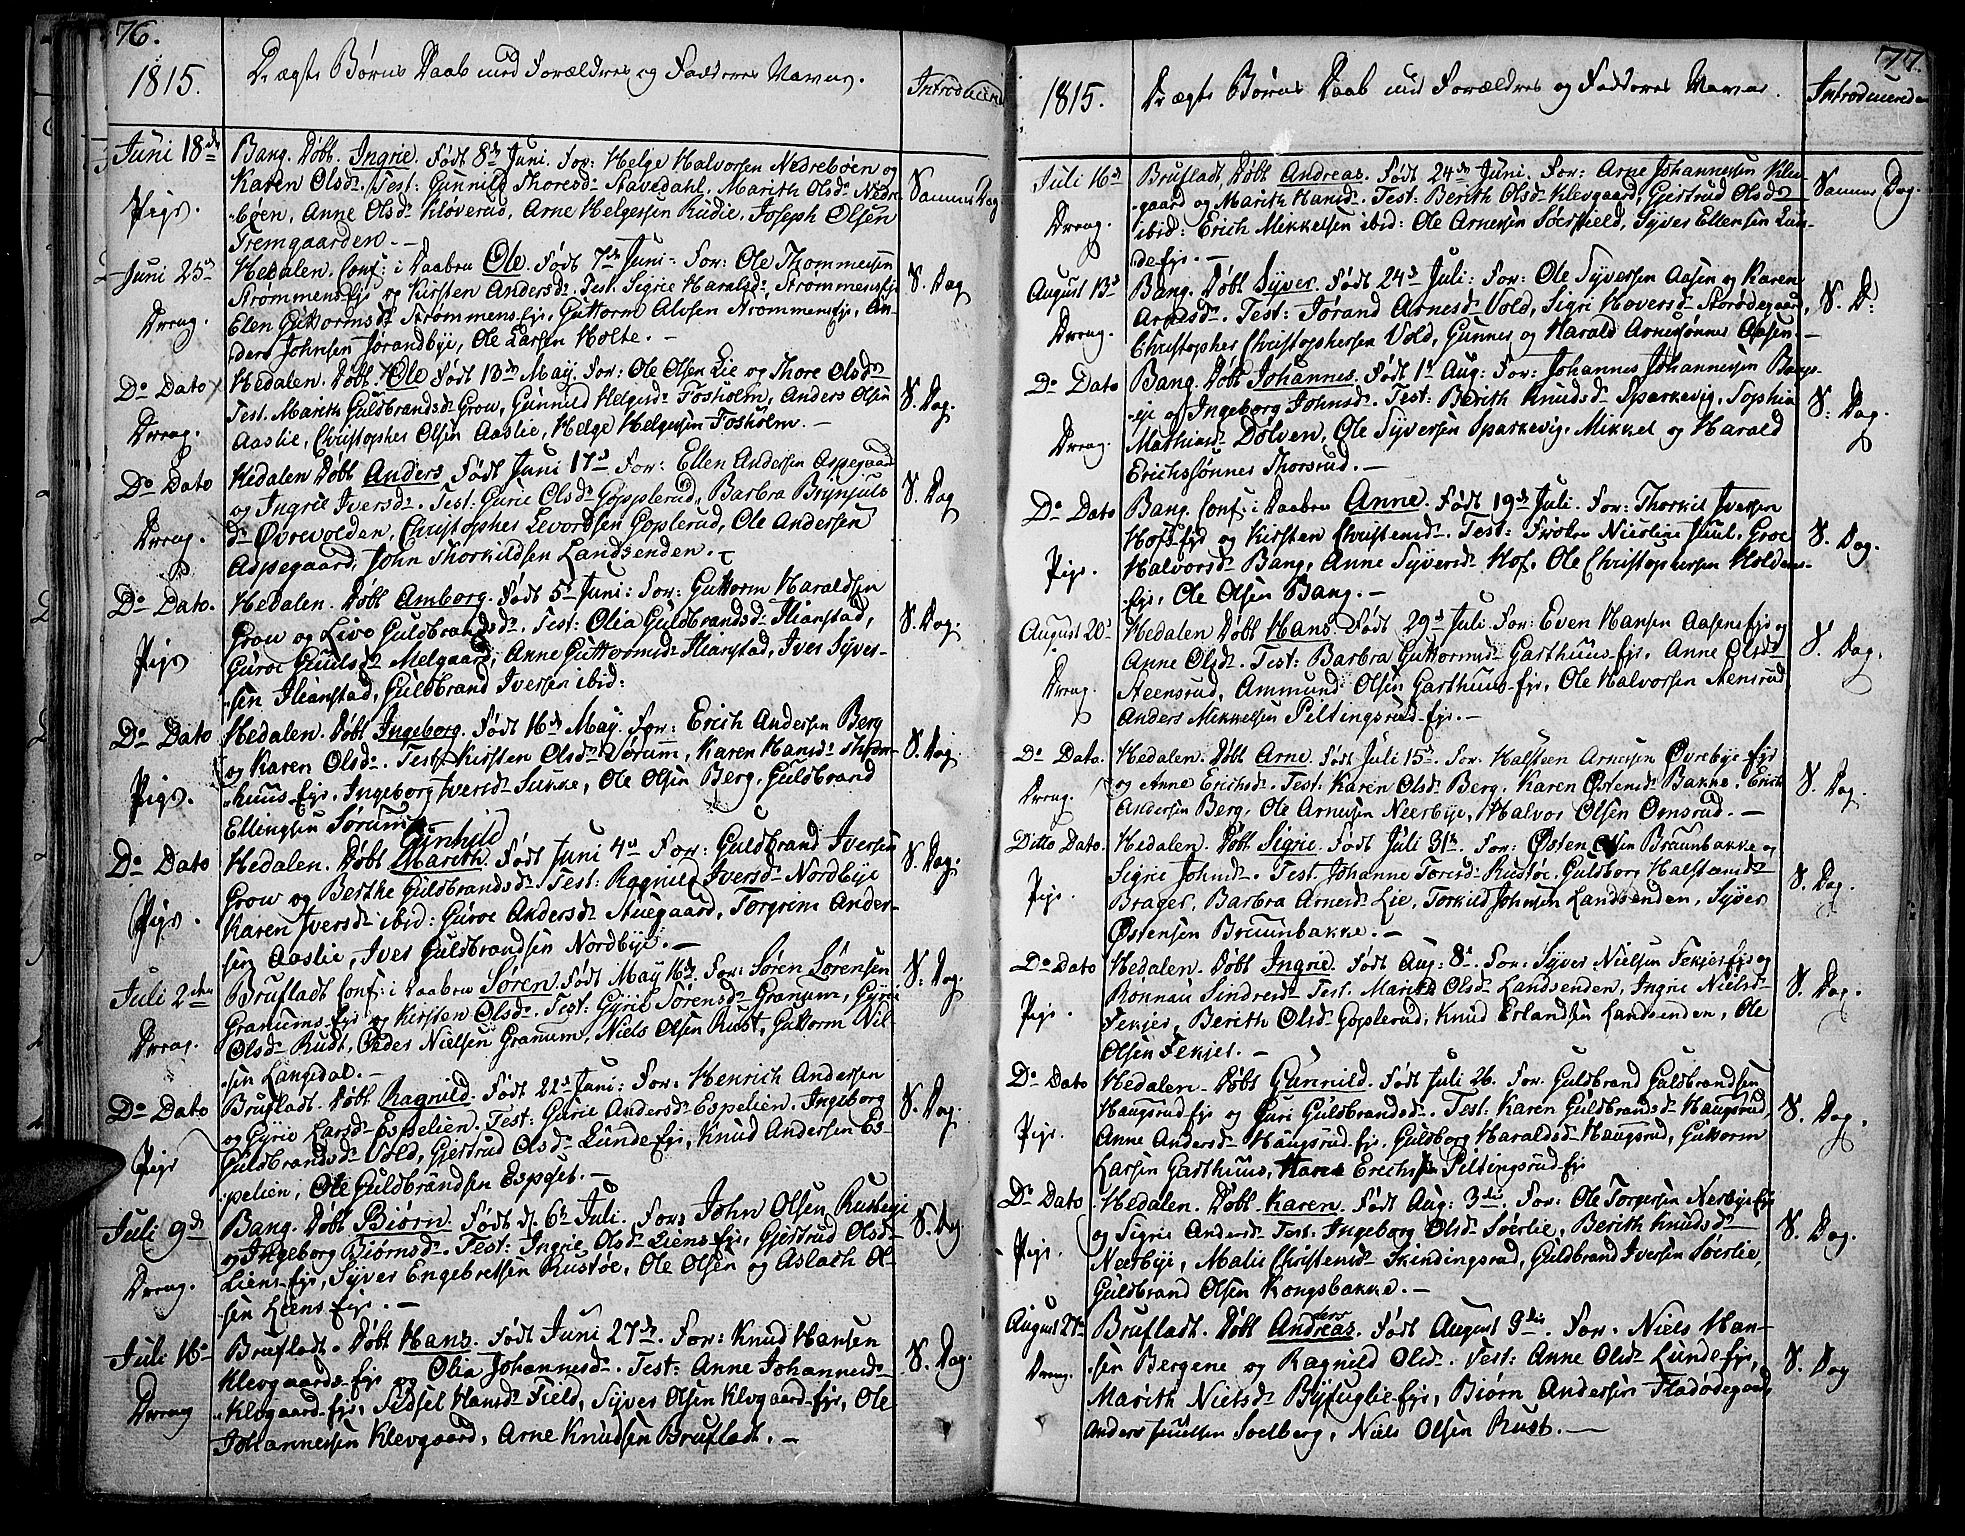 76.
1815.
De ægte Børns Daab med Forældres og Fadderes Navne.
Introducerede
Juni 18de
Pige.
Bang. Døbt. Ingrie. Født 8de Juni. For: Helge Halvorsen Nedrebøen og
Karen Olsdr. Test: Gunnild Thoresdr Stavedahl, Marith Olsdr Nedre-
bøen, Anne Olsdr Kløverud, Arne Helgersen Rudie, Joseph Olsen
Fremgaarden. -
Sammer Dag
Juni 25de
Dreng.
Hedalen. Conf: i Daaben Ole. Født 7de Juni. For: Ole Thommesen
Strømmens Eje og Kirsten Andersdr. Test. Sigrie Haralsdr. Strømmens Eje
Elen Guttormsdr Strømmens Eje, Guttorm Alvsen Strømmens Eje, An-
ders Johnsen Jorandbye, Ole Larsen Holte. -
S. Dag
Do Dato
Dreng.
Hedalen. Døbt. Ole Født 13de May. For: Ole Olsen Lie og Thore Olsdr
Test. Marith Guldbrandsdr Grow, Gunnild Helgesdr Fosholm, Anders Olsen
Aaslie, Christopher Olsen Aaslie, Helge Helgersen Fosholm. -
S. Dag.
Do Dato
Dreng.
Hedalen Døbt Anders Født Juni 17de For: Ellen Andersen Aspegaard
og Ingrie Iversdr. Test: Gurie Olsdr Goplerud, Barbra Brynjuls
dr Øvrevolden, Christopher Levordsen Goplerud, Ole Andersen
Aspegaard, John Thorkildsen Landsenden. -
S. Dag
Do Dato.
Pige
Hedalen. Døbt Amborg. Født 5te Juni: For: Guttorm Haraldsen
Grow og Live Guldbrandsdr. Test: Olia Guldbrandsdr Ilianstad,
Guroe Gudsdr Melgaard, Anne Guttormsdr Ilianstad, Iver Syver-
sen Ilianstad, Guldbrand Iversen ibid:
S. Dag.
Do Dato
Pige.
Hedalen. Døbt Ingeborg. Født 16de May. For: Erich Andersen Berg
og Karen Olsdr. Test: Kirsten Olsdr Sørum, Karen Hansdr Throm-
huus Eje. Ingeborg Iversdr Sukke, Ole Olsen Berg, Guldbrand
Ellingsen Sørum.
S. Dag.
Do Dato
Pige.
Gunhild
Hedalen. Døbt Marith. Født Juni 4de For: Guldbrand Iversen
Grow og Berthe Guldbrandsdr. Test: Ragnild Iversdr Nordbye
Karen Iversdr ibid: Guroe Andersdr Stuegaard, Torgrim Ander-
sen Aaslie, Iver Guldbrandsen Nordbye. -
S. Dag.
Juli 2den
Dreng.
Brufladt Conf: i Daaben Søren. Født May 16de. For: Søren Sørensen
Granums Eje og Kirsten Olsdr. Test: Gyrie Sørensdr Granum, Gyrie
Olsdr Rudt, Peder Nielsen Granum, Niels Olsen Rust, Guttorm Nil-
sen Langedal. -
S. Dag.
Do Dato
Pige
Brufladt. Døbt Ragnild. Født 22de Juni: For: Henrich Andersen
og Gyrie Larsdr Espelien. Test: Gurie Andersdr Espelien. Ingeborg
Guldbrandsdr Vold, Gjertrud Olsdr Lunde Eje, Knud Andersen Es-
pelien, Ole Guldbrandsen Espeset. -
S. Dag.
Juli 9de
Dreng.
Bang. Døbt Biørn. Født d. 6te Juli. For: John Olsen Rusteeje
og Ingeborg Biørnsdr. Test: Ingrie Olsdr Liens Eje, Gjertrud Olsdr
Liens Eje, Syver Engebretsen Rustøe, Ole Olsen og Aslach Ol-
sen Liens Eje. -
S. Dag
Juli 16de
Dreng
Brufladt. Døbt Hans. Født Juni 27de. For: Knud Hansen
Klevgaards Eje og Olia Johannesdr. Test: Anne Johannesdr
Klevgaard Eje, Sidsel Hansdr Field, Syver Olsen Klevgaard Eje, Ole
Johannessen Klevgaard, Arne Knudsen Brufladt. -
S. Dag.
77.
1815.
De ægte Børns Daab med Forældres og Fadderes Navne.
Introducerede
Juli 16de
Dreng.
Brufladt, Døbt Andreas. Født 24de Juni. For: Arne Johannessen Klev-
gaard og Marith Hansdr. Test: Berith Olsdr Klevgaard, Gjertrud Olsdr
ibid: Erich Mikkelsen ibid: Ole Arnesen Søerfield, Syver Ellensen Lun-
de Eje. -
Sammer Dag.
August 13de
Dreng.
Bang. Døbt Syver. Født 24de Juli: For: Ole Syversen Aasen og Karen
Arnesdr. Test: Jørand Arnesdr Vold, Sigri Hoversdr Storødegaard,
Christopher Christophersen Vold, Gunner og Harald Arnesønner Aasen. -
S. D:
Do Dato
Dreng.
Bang. Døbt Johannes. Født 1te Aug: For: Johannes Johannesen Bangs-
eje og Ingeborg Johnsdr. Test: Berith Knudsdr Sparkevig, Sophia
Mathiasdr Dølven, Ole Syversen Sparkevig, Mikkel og Harald
Erichssønner Thorsrud. -
S. Dag.
Do Dato
Pige.
Bang. Conf: i Daaben Anne. Født 19de Juli. For: Thorkil Iversen
Hofs Eje og Kirsten Christensdr. Test: Frøken Nicoline Juul, Groe
Halvorsdr Bang, Anne Syversdr Hof, Ole Christophersen Holdens-
Eje, Ole Olsen Bang. -
S. Dag.
August 20de
Dreng.
Hedalen Døbt Hans. Født 29de Juli. For: Even Hansen Aasens Eje og
Anne Olsdr. Test: Barbra Guttormsdr Garthuus Eje, Anne Olsdr
Steensrud, Ammund Olsen Garthuus Eje, Ole Halvorsen Stensrud
Anders Mikkelsen Piltingsrud Eje. -
S. Dag.
Do Dato.
Dreng.
Hedalen. Døbt Arne. Født Juli 15de. For: Halsteen Arnesen Øvrebye Eje
og Anne Erichsdr. Test: Karen Olsdr Berg. Karen Østensdr Bakke. Erich
Andersen Berg, Ole Arnesen Neerbye, Halvor Olsen Omsrud. -
S. Dag.
Ditto Dato.
Pige.
Hedalen. Døbt Sigrie. Født Juli 31te. For: Østen Olsen Bruunbakke og
Sigrie Johnsdr. Test. Johanne Toresdr Rustøe. Guldborg Halsteensdr
Brager, Barbra Arnesdr Lie, Torkild Johnsen Landsenden, Syver
Østensen Bruunbakke. -
S. Dag.
Do Dato
Pige.
Hedalen. Døbt Ingrie. Født Aug: 8de. For: Syver Nielsen Fekjer Eje og
Rønnau Sindresdr Test: Marith Olsdr Landsenden, Ingrie Nielsdr
Fekjer, Berith Olsdr Goplerud, Knud Erlandsen Landsenden, Ole
Olsen Fekjer. -
S. Dag.
Do Dato
Pige.
Hedalen. Døbt Gunnild. Født Juli 26. For. Guldbrand Guldbrandsen
Haugsrud Eje og Guri Guldbrandsdr. Test: Karen Guldbrandsdr Haugsrud,
Anne Andersdr Haugsrud Eje. Guldborg Haraldsdr Haugsrud, Guttorm
Larsen Garthuus, Erichsen Piltingsrud Eje
S. Dag.
Do Dato
Pige.
Hedalen. Døbt Karen. Født Aug: 3die. For: Ole Torgersen Neerbye Eje
og Sigrie Andersdr Test: Ingeborg Olsdr Søerlie, Berith Knudsdr
Neerbye, Malie Christensdr Skindingsrud, Guldbrand Iversen Søerlie,
Guldbrand Olsen Kongsbakke. -
S. Dag.
August 27de
Dreng.
ders
Brufladt. Døbt Andreas. Født August 9de. For. Niels Han-
sen Bergene og Ragnild Olsdr. Test: Anne Olsdr Lunde Eje,
Marith Nielsdr Byfuglie Eje, Biørn Andersen Fladødegaard
Anders Juulsen Soelberg, Niels Olsen Rust. -
S. Dag